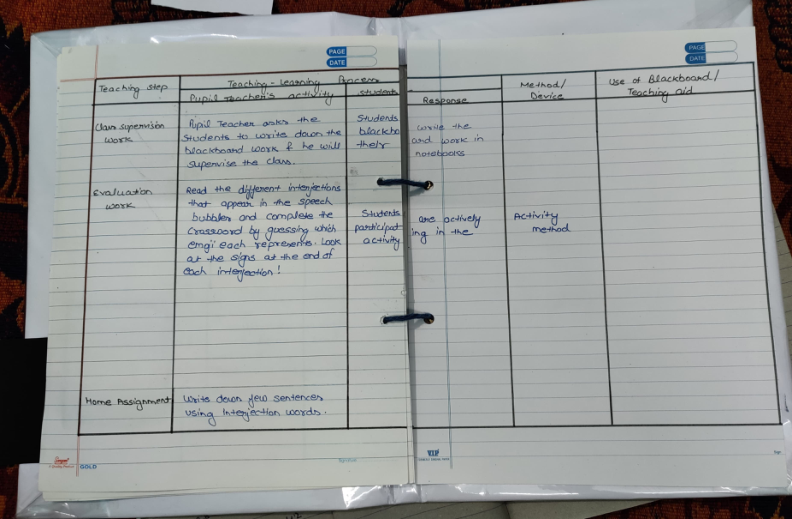 PAGE
DATE
PAGE
DATE
Teaching step
Teaching - Learning Process
Pupil Teacher's activity
Students
Response
Method/
Device
Use of Blackboard/
Teaching aid
Class supervision
work
Pupil Teacher asks the
students to write down the
blackboard work & he will
supervise the class.
Students write the
blackboard work in
their notebooks
Evaluation
work
Read the different interjections
that appear in the speech
bubbles and complete the
Crossword by guessing which
emgi each represents. Look
at the signs at the end of
each interjection!
Students are actively
participating in the
activity
Activity
method
Home Assignment
Write down few sentences
using Interjection words.
GOLD